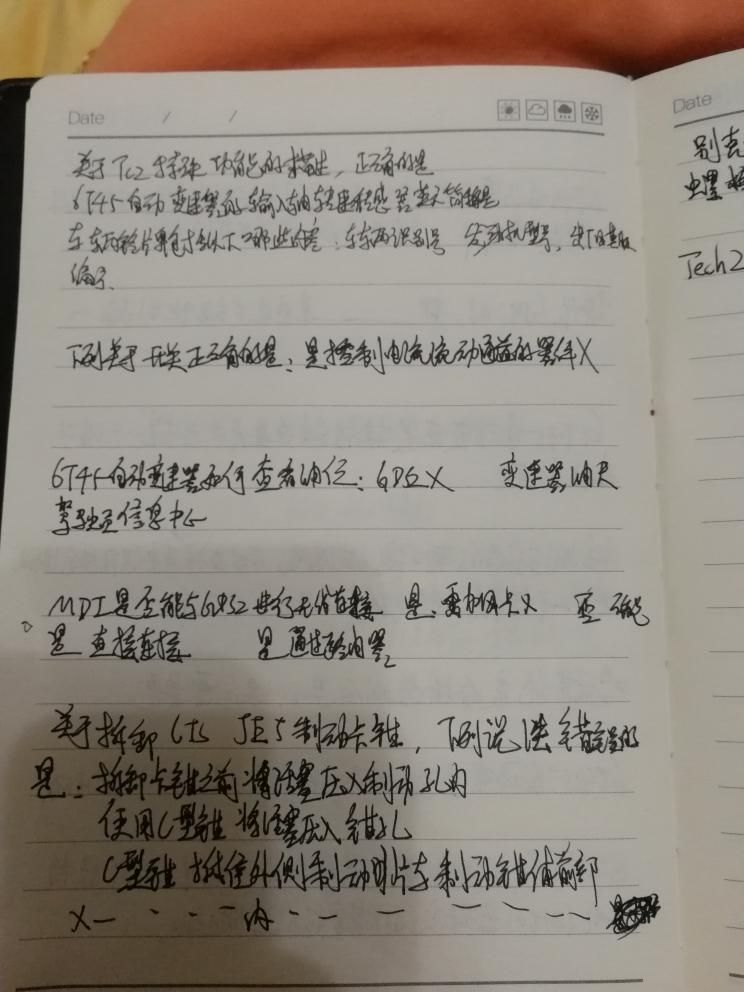 Date / /
关于Tc2 功能的描述,正确的是
6T45自动变速器的输入轴转速传感器 简称是
车辆 以下哪些内容:车辆识别号 发动机型号,
编号.
下列关于开关正确的是:是控制电流流动通路的器件X
6T45自动变速器如何查看油位:GDS X 变速器油尺
驾驶员信息中心
MDI是否能与GDS2进行无线连接 是,需加网卡X 否
是 直接连接 是通过路由器
关于拆卸 制动卡钳,下列说法错误的
是:拆卸卡钳之前将活塞压入制动孔内
使用C型钳将活塞压入钳孔
C型钳 外侧制动 片与制动钳 前部
X — 内 — — —
Date
别克
螺
Tech2